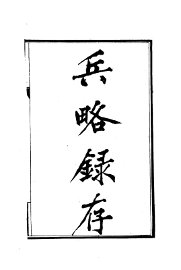 兵略録存